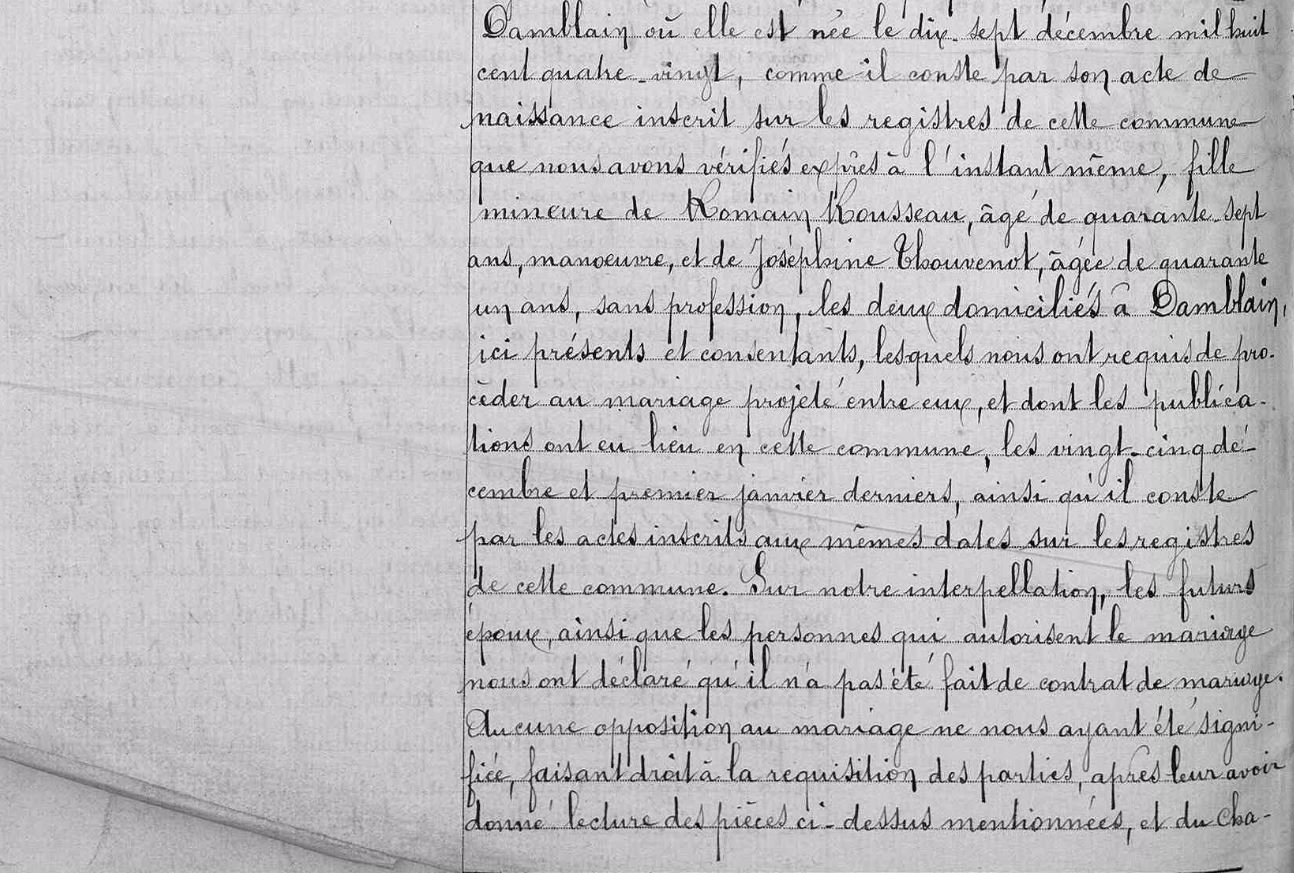 Damblain où elle est née le dix-sept décembre mil huit
cent quatre-vingt, comme il conste par son acte de
naissance inscrit sur les registres de cette commune
que nous avons vérifiés exprès à l'instant même, fille
mineure de Romain Rousseau, âgé de quarante-sept
ans, manoeuvre, et de Joséphine Thouvenot, âgée de quarante
un ans, sans profession, les deux domiciliés à Damblain,
ici présents et consentants, lesquels nous ont requis de pro-
céder au mariage projeté entre eux, et dont les publica-
tions ont eu lieu en cette commune, les vingt-cinq dé-
cembre et premier janvier derniers, ainsi qu'il conste
par les actes inscrits aux mêmes dates sur les registres
de cette commune. Sur notre interpellation, les futurs
époux, ainsi que les personnes qui autorisent le mariage
nous ont déclaré qu'il n'a pas été fait de contrat de mariage.
Aucune opposition au mariage ne nous ayant été signi-
fiée, faisant droit à la requisition des parties, après leur avoir
donné lecture des pièces ci-dessus mentionnées, et du cha-